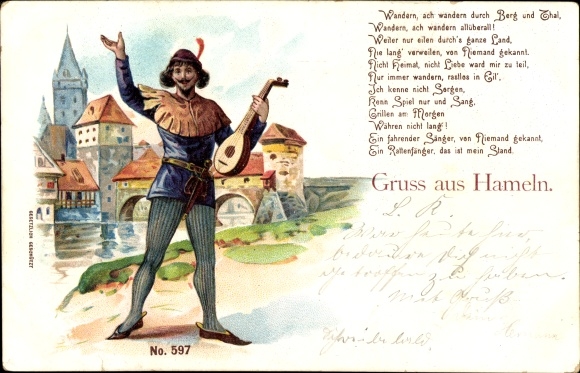 Wandern, ach wandern durch Berg und Thal,
Wandern, ach wandern allüberall!
Weiter nur eilen durch's ganze Land,
Nie lang' verweilen, von Niemand gekannt.
Nicht Heimat, nicht Liebe ward mir zu teil,
Nur immer wandern, rastlos in Eil',
Ich kenne nicht Sorgen,
Kenn Spiel nur und Sang,
Grillen am Morgen
Währen nicht lang'!
Ein fahrender Sänger, von Niemand gekannt,
Ein Rattenfänger, das ist mein Stand.
Gruss aus Hameln.
L. K.
War heute hier,
bedaure Dich nicht
getroffen zu haben.
Mit Gruß
GESETZLICH GESCHÜTZT
No. 597